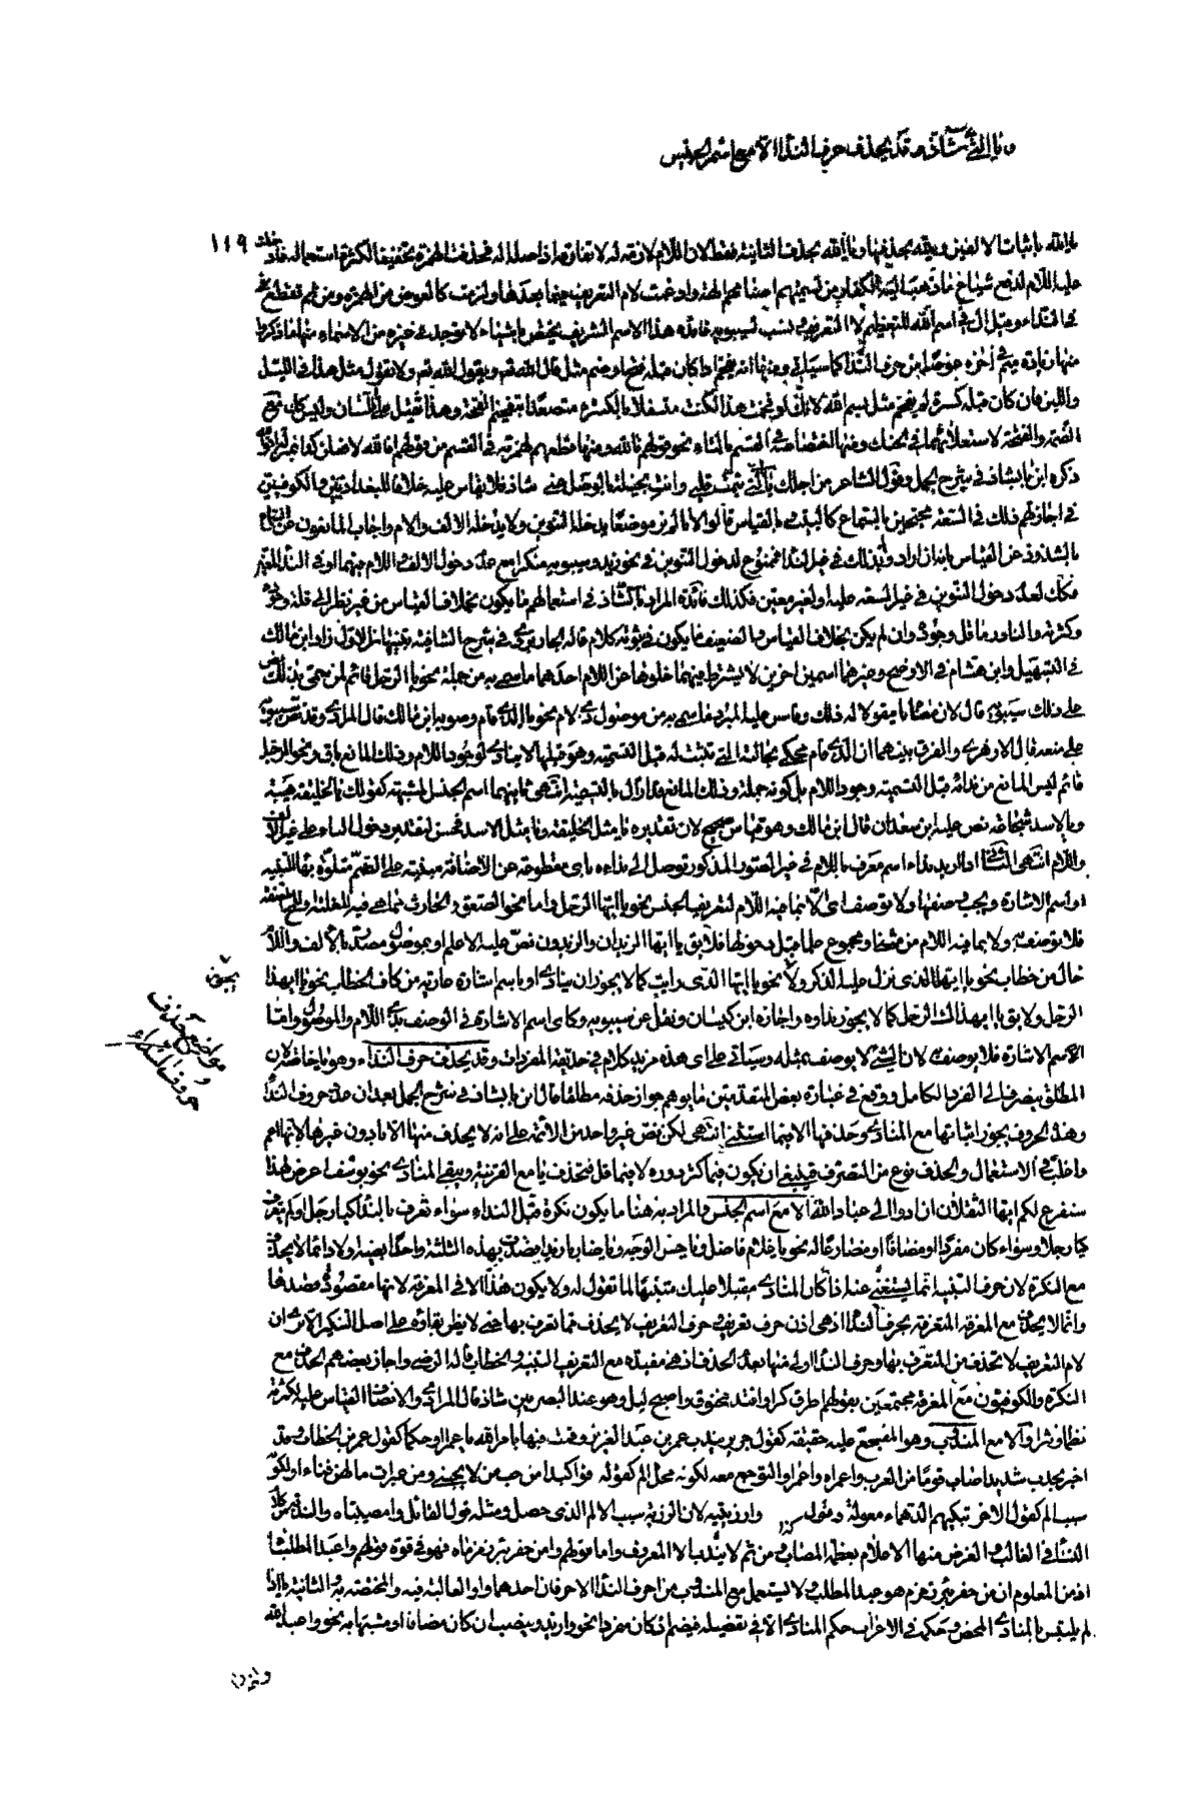 و يا التي شاذ وقد يحذف حرف النداء الا مع اسم الجنس
١١٩
يا الله باثبات الالفين ويلله بحذفهما ويا لله بحذف الثانية فقط لان اللام لازمة له لا تفارقه اذ اصله اله فحذفت الهمزة تخفيفا لكثرة استعماله
في النداء وقيل ال في اسم الله للتعظيم لا التعريف ونسب لسيبويه فائدة هذا الاسم الشريف يختص باشياء لا توجد في غيره من الاسماء منها ما ذكر
منها زيادة ميم في آخره عوضا من حرف النداء كما سيأتي ومنها انه يفخم اذا كان قبله فتح او ضم مثل قال الله ويقول الله
واللين فان كان قبله كسرة لم يفخم مثل بسم الله لانك لو فخمت هذا لكنت متسفلا بالكسرة متصعدا بتفخيم الفتحة وهذا ثقيل على اللسان
الضمة والفتحة لاستعلائهما في الحنك ومنها اختصاصه في القسم بالتاء نحو قولهم تالله ومنها قطعهم همزته في القسم من قولهم
ذكره ابن بابشاذ في شرح الجمل وقول الشاعر من اجلك يا التي تيمت قلبي وانت بخيلة بالوصل عني شاذ فلا يقاس عليه خلافا للبغداديين والكوفيين
في اجازتهم ذلك في السعة محتجين بالسماع كالبيت وبالقياس قالوا الا ترى موضعا يدخله التنوين ولا يدخله الالف واللام واجاب المانعون عن
بالشذوذ عن القياس
فكان لعدم دخول التنوين في غير السعة عليه او لغير معين فكذلك فائدة المراد بالشاذ في استعمالهم ما يكون بخلاف القياس من غير نظر الى قلة وجوده
وكثرته والنادر ما قل وجوده وان لم يكن بخلاف القياس والضعيف ما يكون في ثبوته كلام قاله الجاربردي في شرح الشافية تنبيهان الاول زاد ابن مالك
في التسهيل وابن هشام في الاوضح وغيرهما اسمين آخرين لا يشترط فيهما خلوهما عن اللام احدهما ما سمي به من جملة نحو يا الرجل قائم لمن سمي بذلك نص
على ذلك سيبويه قال لان معناه يا مقولا له ذلك وقاس عليه المبرد ما سمي به من موصول ذي لام نحو يا الذي قام وصوبه ابن مالك قال المرادي وقد نص سيبويه
على منعه قال الازهري والفرق بينهما ان الذي قام محكي بحالته التي تثبت له قبل التسمية وهو قبلها لا ينادى لوجود اللام وذلك المانع باق ونحو الرجل
قائم ليس المانع من ندائه قبل التسمية وجود اللام بل كونه جملة وذلك المانع قد زال بالتسمية انتهى ثانيهما اسم الجنس المشبه به كقولك يا الخليفة هيبة
ويا الاسد شجاعة نص عليه ابن سعدان قال ابن مالك وهو قياس صحيح لان تقديره يا مثل الخليفة ويا مثل الاسد فحسن لتقدير دخول يا على غير الالف
واللام انتهى الثاني اذا اريد نداء اسم معرف باللام في غير الصور المذكورة توصل الى ندائه باي مقطوعة عن الاضافة مبنية على الضم متلوة بها التنبيه
او اسم الاشارة ويجب وصفها ولا توصف اي الا بما فيه اللام لتعريف الجنس نحو يا ايها الرجل واما نحو الصعق والحارث مما هي فيه للغلبة وللمح الصفة
فلا توصف به ولا بما فيه اللام من مثنى او مجموع علما قبل دخولها فلا يق يا ايها الزيدان والزيدون نص عليه الاعلم او بموصول مصدر بالالف واللام
خال من خطاب نحو يا ايها الذي نزل عليه الذكر ولا نحو يا ايها الذي رايت كما لا يجوز ان ينادى او باسم اشارة عارية من كاف الخطاب نحو يا ايهذا
الرجل ولا يق يا ايهذاك الرجل كما لا يجوز نداؤه واجازه ابن كيسان ونقل عن سيبويه وكاي اسم الاشارة في الوصف بذي اللام والموصول واما
الاسم الاشارة فلا يوصف به لان الشيء لا يوصف بمثله وسيأتي على اي هذه مزيد كلام في حديقة المفردات وقد يحذف حرف النداء وهو يا خاصة لان
المطلق ينصرف الى الفرد الكامل ووقع في عبارة بعض المتقدمين ما يوهم جواز حذفه مطلقا قال ابن بابشاذ في شرح الجمل بعد ان عد حروف النداء
وهذه الحروف يجوز اثباتها مع المنادى وحذفها الا فيما استثني انتهى لكن نص غير واحد من الائمة على انه لا يحذف منها الا يا دون غيرها لانها اعم
واغلب في الاستعمال والحذف نوع من التصرف فينبغي ان يكون فيما كثر دوره لا فيما قل فتحذف يا مع القرينة ويبقى المنادى نحو يوسف اعرض عن هذا
سنفرغ لكم ايها الثقلان ان ادوا الي عباد الله الا مع اسم الجنس والمراد به هنا ما يكون نكرة قبل النداء سواء تعرف بالنداء كيا رجل او لم يتعرف
كيا رجلا وسواء كان مفردا او مضافا او مضارعا له نحو يا غلام فاضل ويا حسن الوجه ويا ضاربا زيدا وانما لا يحذف
مع النكرة لان حرف التنبيه انما يستغنى عنه اذا كان المنادى مقبلا عليك متنبها لما تقول له ولا يكون هذا الا في المعرفة لانها مقصود قصدها
وانما لا يحذف مع المعرفة المتعرفة بحرف النداء اذ هي اذن حرف تعريف وحرف التعريف لا يحذف مما تعرف بها حتى لا يظن بقاؤه على اصل التنكير الا ترى ان
لام التعريف لا تحذف من المتعرف بها وحرف النداء اولى منها بعدم الحذف اذ هي مفيدة مع التعريف التنبيه والخطاب قاله الرضي واجاز بعضهم الحذف مع
النكرة والكوفيون مع المعرفة محتجين بقولهم اطرق كرا وافتد مخنوق واصبح ليل وهو عند البصريين شاذ قال المرادي والانصاف القياس عليه لكثرته
نظما ونثرا والا مع المندوب وهو المتفجع عليه حقيقة كقول جرير يندب عمر بن عبد العزيز وقمت فيها بامر الله يا عمرا او حكما كقول عمر بن الخطاب وقد
اخبر بجدب شديد اصاب قوما من العرب واعمراه واعمراه او التوجع معه لكونه محل الم كقوله فواكبدا من حب من لا يحبني ومن عبرات ما لهن فناء او لكونه
سبب الم كقول الآخر تبكيهم الدهماء معولة وتقول وارزيتيه لان الرزية سبب الالم الذي حصل ومثله قول القائل وامصيبتاه والندبة من كلام
النساء في الغالب والغرض منها الاعلام بعظمة المصاب ومن ثم لا يندب الا المعروف واما قولهم وا من حفر بئر زمزماه فهو في قوة قولهم واعبد المطلباه
اذ من المعلوم ان من حفر بئر زمزم هو عبد المطلب ولا يستعمل مع المندوب من احرف النداء الا حرفان احدهما وا والغالبة فيه والمختصة به والثانية يا اذا
لم يلتبس بالمنادى المحض وحكمه في الاعراب حكم المنادى الا في تفصيله فيضم ان كان مفردا نحو وا زيد وينصب ان كان مضافا او مشبها به نحو وا عبد الله
مواضع حذف
حروف النداء